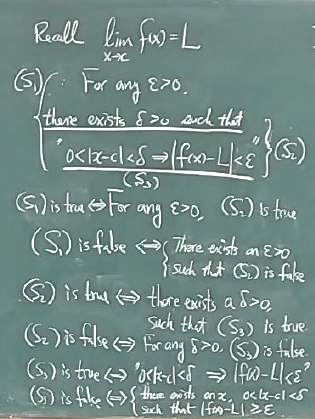 Recall lim f(x)=L
x→c
(S₁) : For any ε>0,
there exists δ>0 such that
"0<|x-c|<δ ⇒ |f(x)-L|<ε" (S₂)
(S₃)
(S₁) is true ⇔ For any ε>0, (S₂) is true
(S₁) is false ⇔ There exists an ε>0
such that (S₂) is false
(S₂) is true ⇔ there exists a δ>0,
such that (S₃) is true.
(S₂) is false ⇔ For any δ>0, (S₃) is false.
(S₃) is true ⇔ "0<|x-c|<δ ⇒ |f(x)-L|<ε"
(S₃) is false ⇔ there exists an x, 0<|x-c|<δ
such that |f(x)-L| ≥ ε